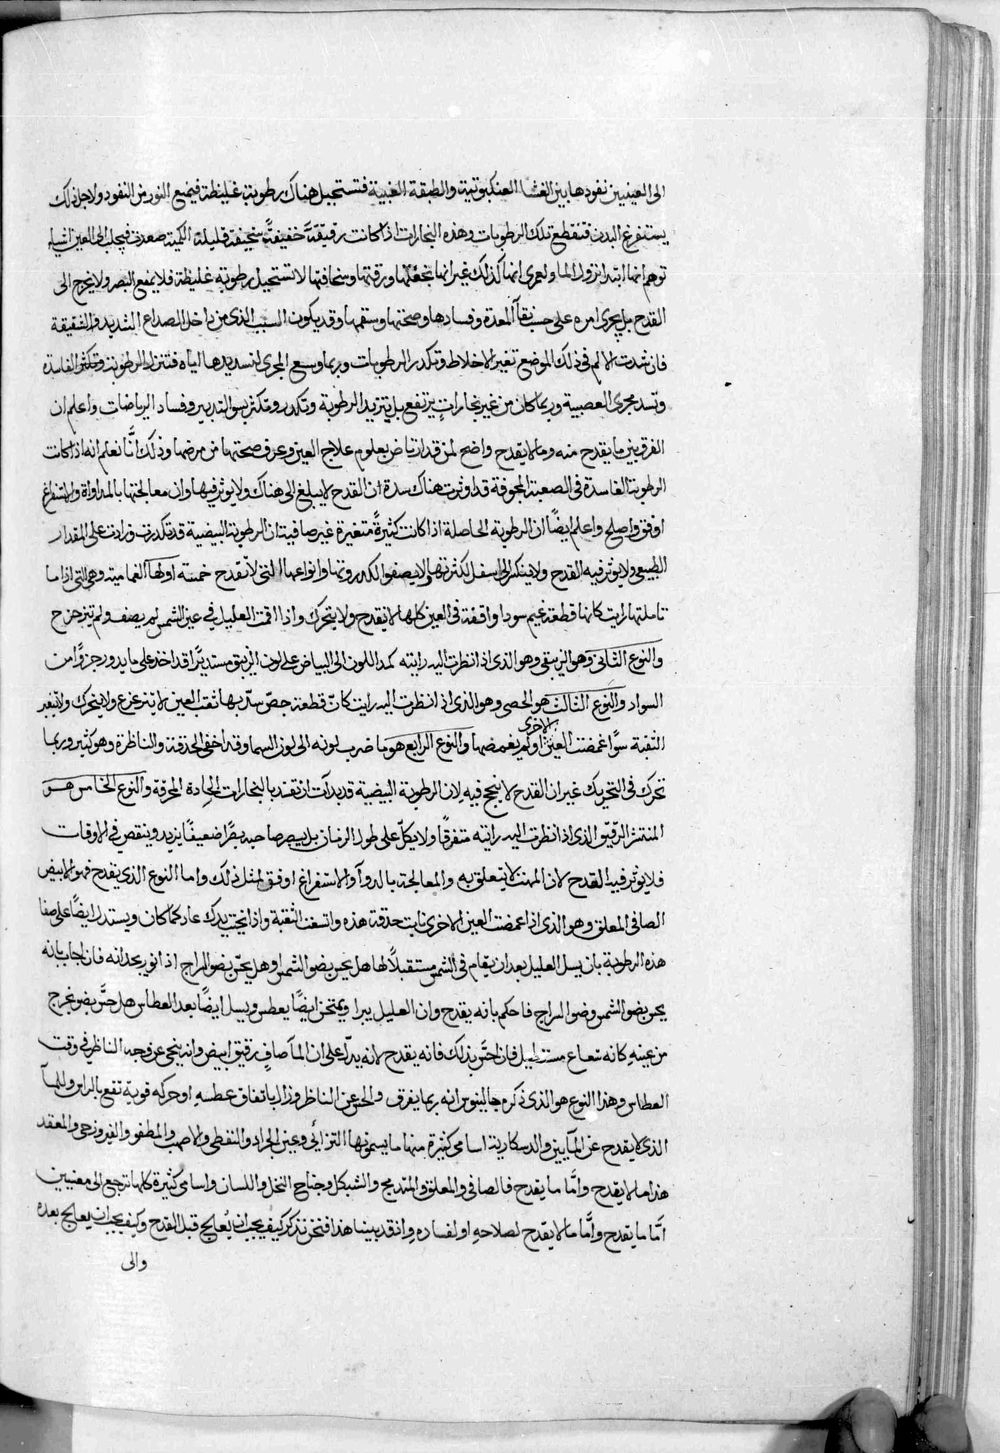 الى العينين نفودها بين الغشا العنكبوتية والطبقة العنبية فتستحيل هناك رطوبة غليظة فيمنع النور من النفود ولاجل ذلك
يستفرغ البدن فتنقطع تلك الرطوبات وهذه البخارات اذا كانت رقيقةً خفيفةً سخيفة قليلة الكمية صعدت الى العين اشياء
توهم انها ابتدا نزول الما ولعمرى انها كذلك غير انها بخفتها ورقتها وسخافتها لا تستحيل رطوبة غليظة فلا يمنع البصر ولا يحوج الى
القدح بل يجرى امره على حسب نقآ المعدة وفسادها وصحتها وسقمها وقد يكون السبب الذى من داخل الصداع الشديد والشقيقة
فان شدت الالم فى ذلك الموضع تغير الاخلاط وتكدر الرطوبات وربما وسع المجرى لتسديدها المياه فتنزل الرطوبة وتكثر الفاسدة
وتسد مجرى العصبية وربما كان من غير بخاراتٍ يرتفع بل يتزيد الرطوبة وتكدر وتكثر بسو التدبير وفساد الرياضات واعلم ان
الفرق بين ما يقدح منه وما لا يقدح واضح لمن قد ارتاض بعلوم علاج العين وعرف صحتها من مرضها وذلك انّا نعلم انه اذا كانت
الرطوبة الفاسدة فى العصبة المجوفة قد اورثت هناك سدة ان القدح لا يبلغ الى هناك ولا يوثر فيها وان معالجتها بالمداواة والاستفراغ
اوفق واصلح واعلم ايضًا ان الرطوبة الحاصلة اذا كانت كثيرةً متغيرة غير صافية ان الرطوبة البيضية قد تكدرت وزادت على المقدار
الطبيعى ولا يوثر فيه القدح ولا ينكس الى اسفل لكثرتها ولا يصفو لكدورتها وانواعها التى لا تقدح خمسة اولها الغمامية وهى التى اذا ما
تاملتها رايت كانها قطعة غيم سودا واقفة فى العين كلها لا يقدح ولا يتحرك واذا اقمت العليل فى عين الشمس لم يصف ولم يتزحزح
والنوع الثانى وهو الزيبقى وهو الذى اذا نظرت اليه رايته كمد اللون الى البياض على لون الزيبق مستديرًا قد اخذ على ما يدور جزوًا من
السواد والنوع الثالث هو الجصى وهو الذى اذا نظرت اليه رايت كانّ قطعة جصّ سدّ بها ثقب العين لا يتزعزع ولا يتحرك ولا يتغير
الثقبة سوًا غمضت العين الاخرى او لم يغمضها والنوع الرابع هو ما ضرب لونه الى لون السما وقد اخفى الحدقة والناظرة وهو كثير وربما
تحرك فى التحريك غير ان القدح لا ينجح فيه لان الرطوبة البيضية قد بدات ان تفسد بالبخارات الحادة المحرقة والنوع الخامس هو
المنتشر الرقيق الذى اذا نظرت اليه رايته متفرقًا ولا يكلّ على طول الزمان بل يبصر صاحبه بصرًا ضعيفًا يزيد وينقص فى الاوقات
فلا يوثر فيه القدح لان المهت لا يتعلق به والمعالجة بالدوآ والاستفراغ اوفق لمثل ذلك واما النوع الذى يقدح فهو الابيض
الصافى المعلق وهو الذى اذا غمضت العين الاخرى حدقة هذه واتسعت الثقبة واذا نحيت يدك عاد كما كان ويستدل ايضًا على صفا
هذه الرطوبة بان يسل العليل بعد ان يقام فى الشمس مستقبلًا لها هل يحس بضو الشمس او هل يحس بضو السراج اذ انو فان اجاب بانه
يحس بضو الشمس وضو السراج فاحكم بانه يقدح وان العليل يبرا ويمتحن ايضًا يعطس ويسل ايضًا بعد العطاس هل حسّ بضو يخرج
من عينه كانه شعاع مستطيل فان احسّ بذلك فانه يقدح لانه يدلّ على ان المآ صافٍ رقيق ابيض وانه ينحى عن وجه الناظر فى وقت
العطاس وهذا النوع هو الذى ذكره جالينوس انه ربما يفرق عن الناظر وزال باتفاق عطسهٍ او حركه قوية تقع بالراس وللمآ
الذى لا يقدح عن المآيين والدسكارية اسامى كثيرة منها ما يسمونها وعين الجراد والنفطى والاصهب والمطفو والفيروزجى والمعقد
هذا ما لا يقدح وامّا ما يقدح فالصافى والمعلق والمتدبج والشبكل وجناح النحل واللسان واسامى كثيرة كلها ترجع الى معنيين
امّا ما يقدح وامّا ما لا يقدح لصلاحهِ او لفسادهِ واذ قد بينا هذا فنحن نذكر كيف يجب ان يُعالج قبل القدح وكيف يجب ان يعالج بعده
والى